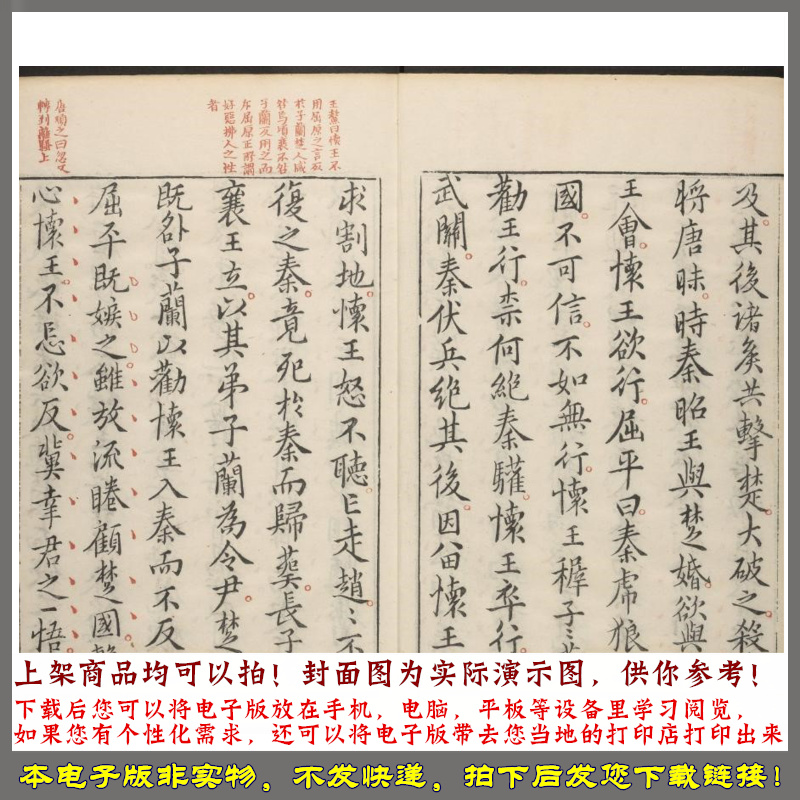 王鏊曰懷王不
用屈原之言
於子蘭楚人咸
咎焉頃襄不知
子蘭反用之而
斥屈原正所謂
好惡拂人之性
者
唐順之曰忽又
轉到離騷上
及其後諸矦共擊楚大破之殺
將唐昧時秦昭王與楚婚欲與
王會懷王欲行屈平曰秦虎狼
國不可信不如無行懷王穉子〻
勸王行柰何絕秦驩懷王卒行
武關秦伏兵絕其後因畱懷王
求割地懷王怒不聽亡走趙〻不
復之秦竟死於秦而歸葬長子
襄王立以其弟子蘭為令尹楚
既咎子蘭以勸懷王入秦而不反
屈平既嫉之雖放流睠顧楚國
心懷王不忘欲反冀幸君之一悟
上架商品均可以拍！封面图为实际演示图，供你参考！
下载后您可以将电子版放在手机，电脑，平板等设备里学习阅览，
如果您有个性化需求，还可以将电子版带去您当地的打印店打印出来
本电子版非实物，不发快递，拍下后发您下载链接！